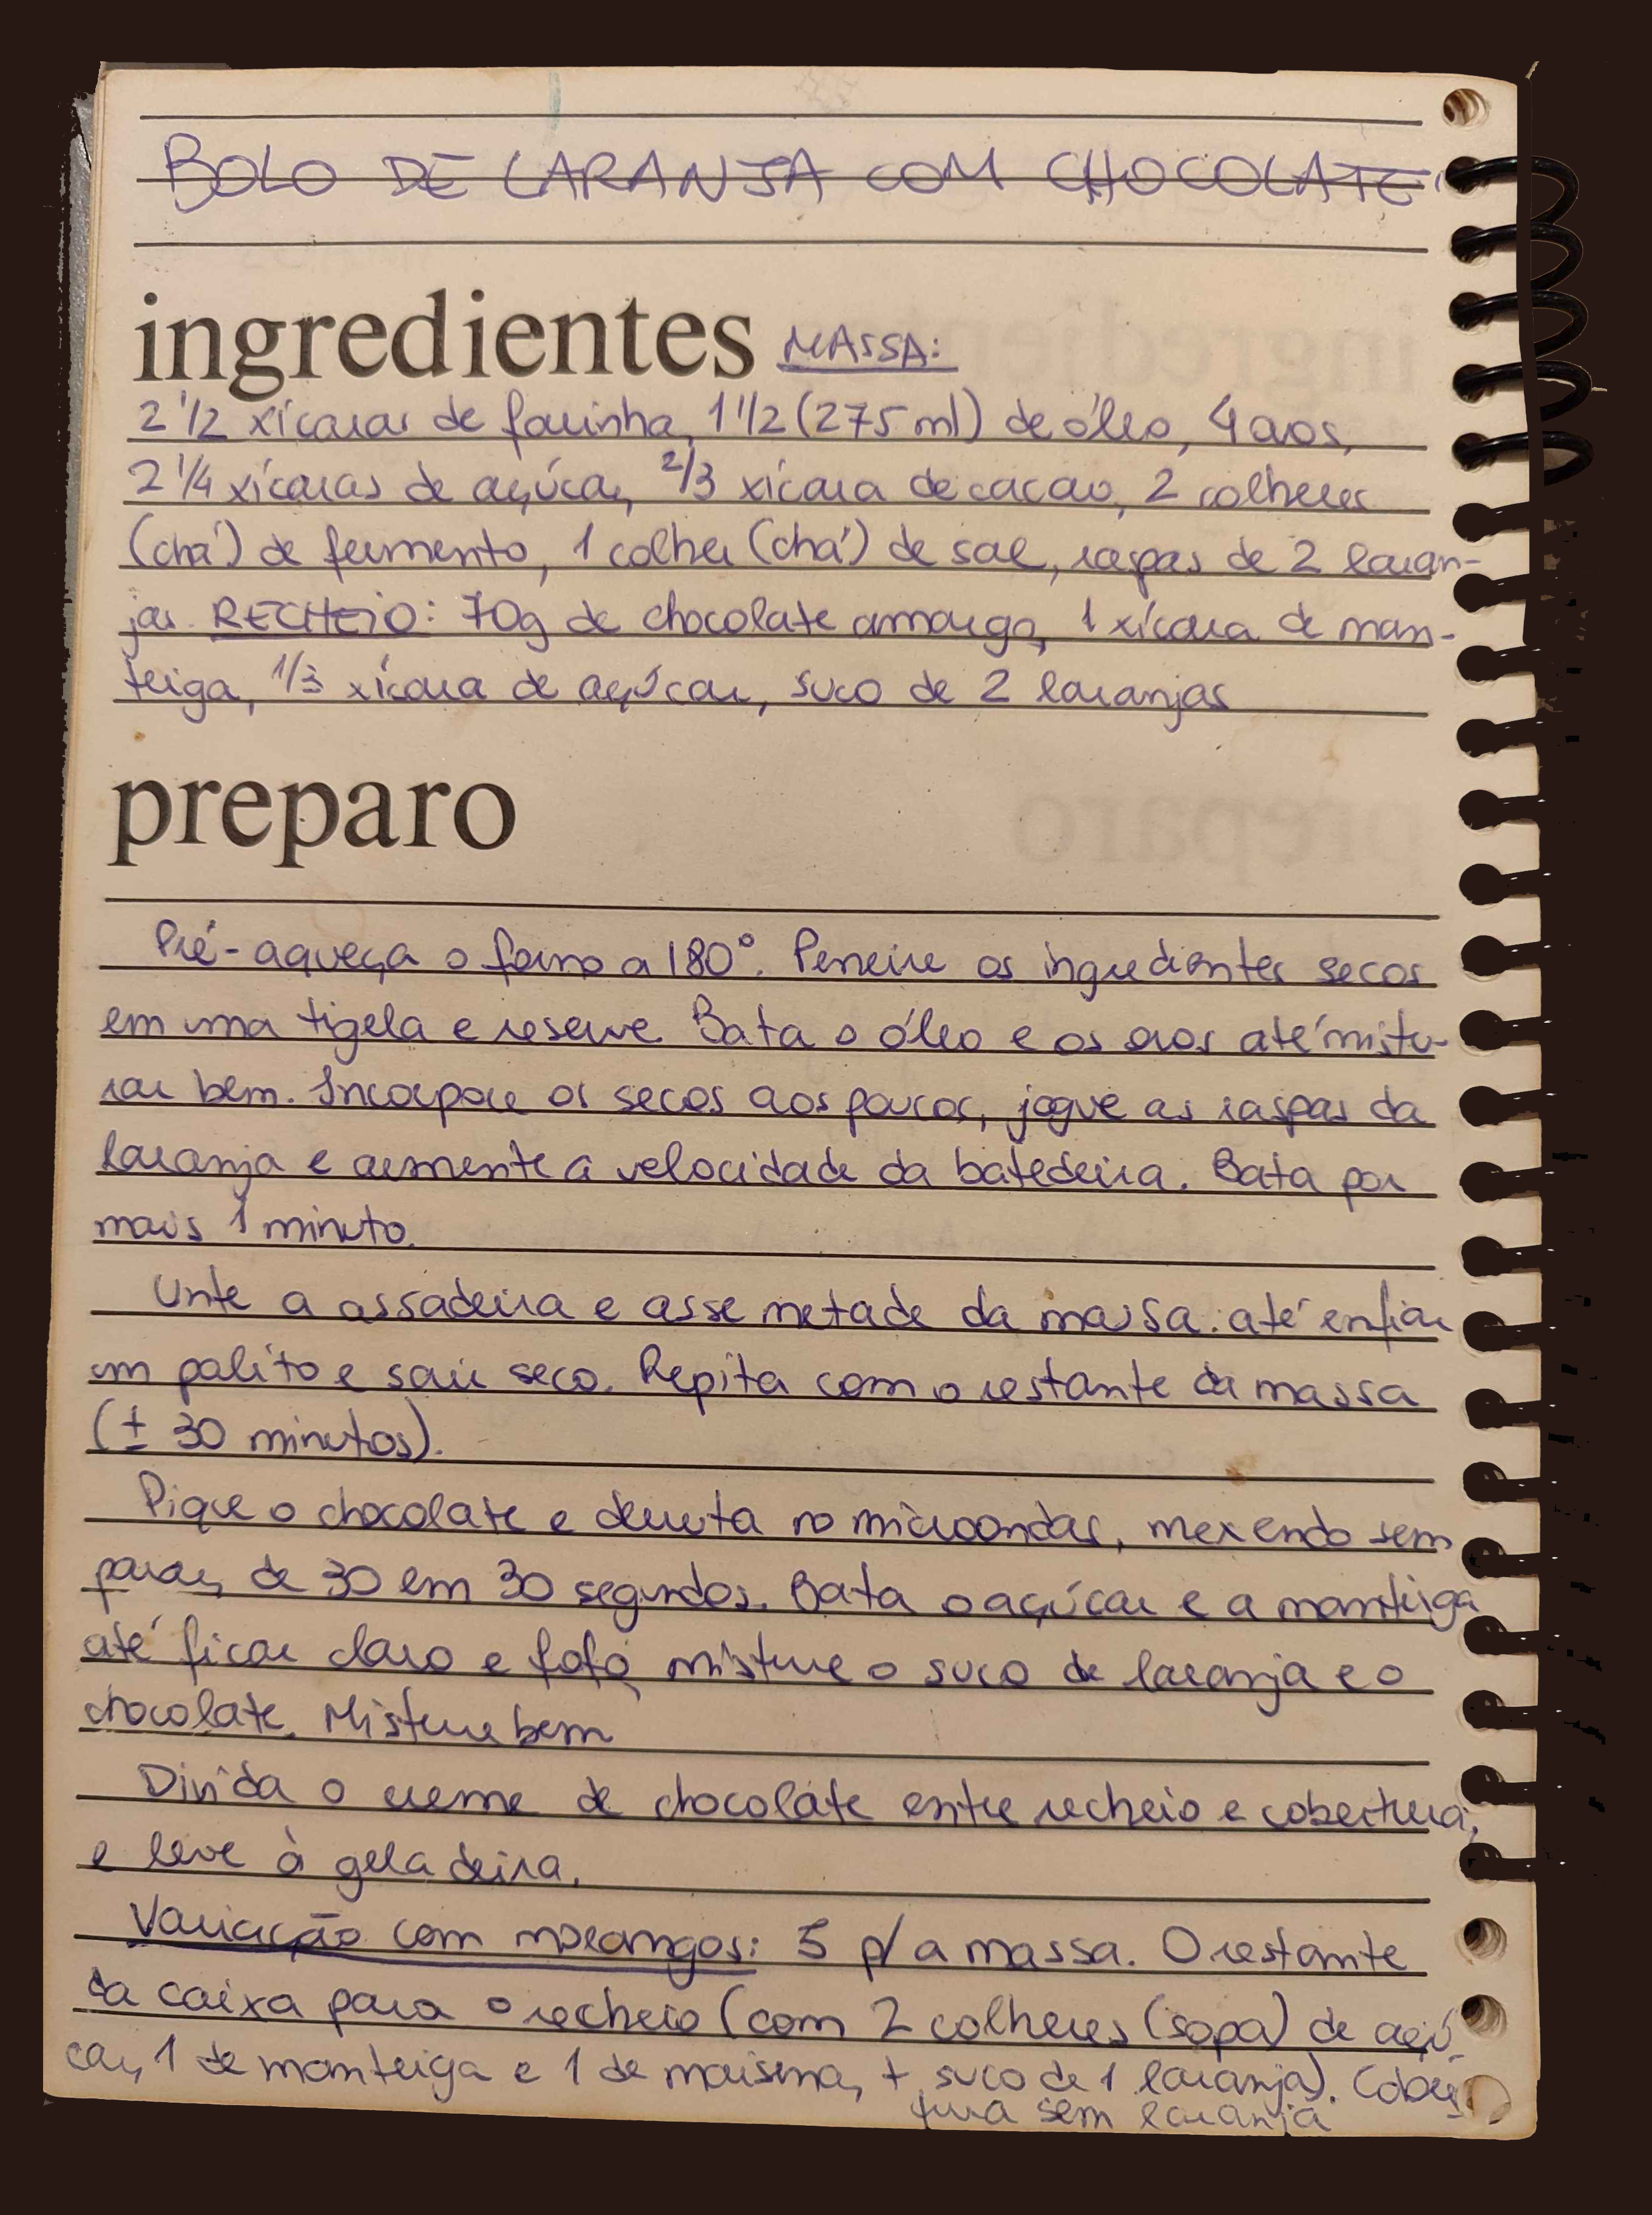 BOLO DE LARANJA COM CHOCOLATE
ingredientes MASSA:
2 1/2 xícaras de farinha, 1 1/2 (275 ml) de óleo, 4 ovos,
2 1/4 xícaras de açúcar, 2/3 xícara de cacao, 2 colheres
(chá) de fermento, 1 colher (chá) de sal, raspas de 2 laran-
jas. RECHEIO: 70g de chocolate amargo, 1 xícara de man-
teiga, 1/3 xícara de açúcar, suco de 2 laranjas
preparo
Pré-aqueça o forno a 180°. Peneire os ingredientes secos
em uma tigela e reserve. Bata o óleo e os ovos até mistu-
rar bem. Incorpore os secos aos poucos, jogue as raspas da
laranja e aumente a velocidade da batedeira. Bata por
mais 1 minuto.
Unte a assadeira e asse metade da massa. até enfiar
um palito e sair seco. Repita com o restante da massa
(± 30 minutos).
Pique o chocolate e derreta no microondas, mexendo sem
parar, de 30 em 30 segundos. Bata o açúcar e a manteiga
até ficar claro e fofo, misture o suco de laranja e o
chocolate. Misture bem
Divida o creme de chocolate entre recheio e cobertura,
e leve à geladeira.
Variação com morangos: 5 p/ a massa. O restante
da caixa para o recheio (com 2 colheres (sopa) de açú-
car, 1 de manteiga e 1 de maisena, + suco de 1 laranja). Cober-
tura sem laranja